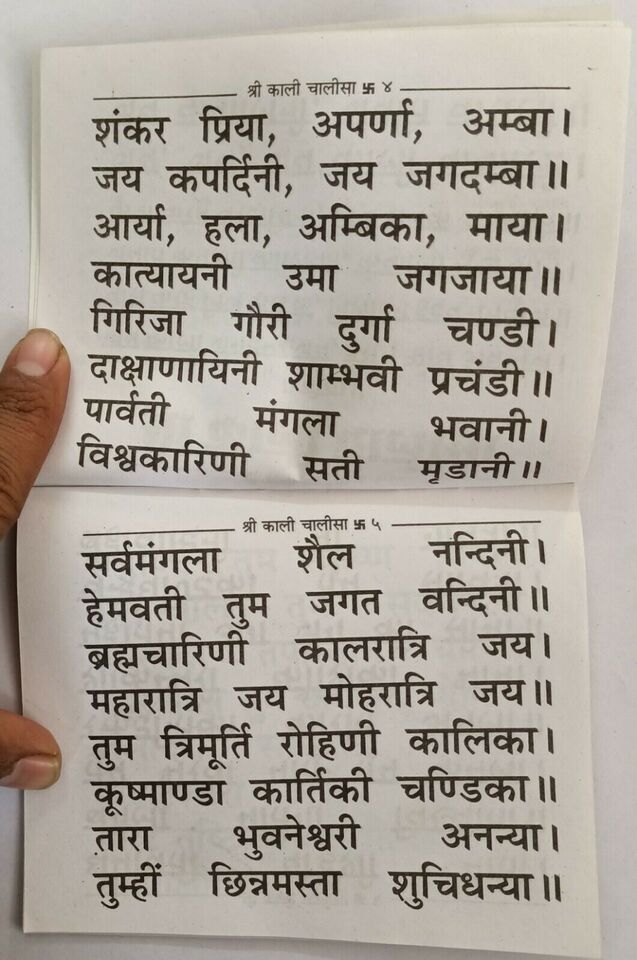 श्री काली चालीसा 卐 ४
शंकर प्रिया, अपर्णा, अम्बा।
जय कपर्दिनी, जय जगदम्बा॥
आर्या, हला, अम्बिका, माया।
कात्यायनी उमा जगजाया॥
गिरिजा गौरी दुर्गा चण्डी।
दाक्षाणायिनी शाम्भवी प्रचंडी॥
पार्वती मंगला भवानी।
विश्वकारिणी सती मृडानी॥
श्री काली चालीसा 卐 ५
सर्वमंगला शैल नन्दिनी।
हेमवती तुम जगत वन्दिनी॥
ब्रह्मचारिणी कालरात्रि जय।
महारात्रि जय मोहरात्रि जय॥
तुम त्रिमूर्ति रोहिणी कालिका।
कूष्माण्डा कार्तिकी चण्डिका॥
तारा भुवनेश्वरी अनन्या।
तुम्हीं छिन्नमस्ता शुचिधन्या॥